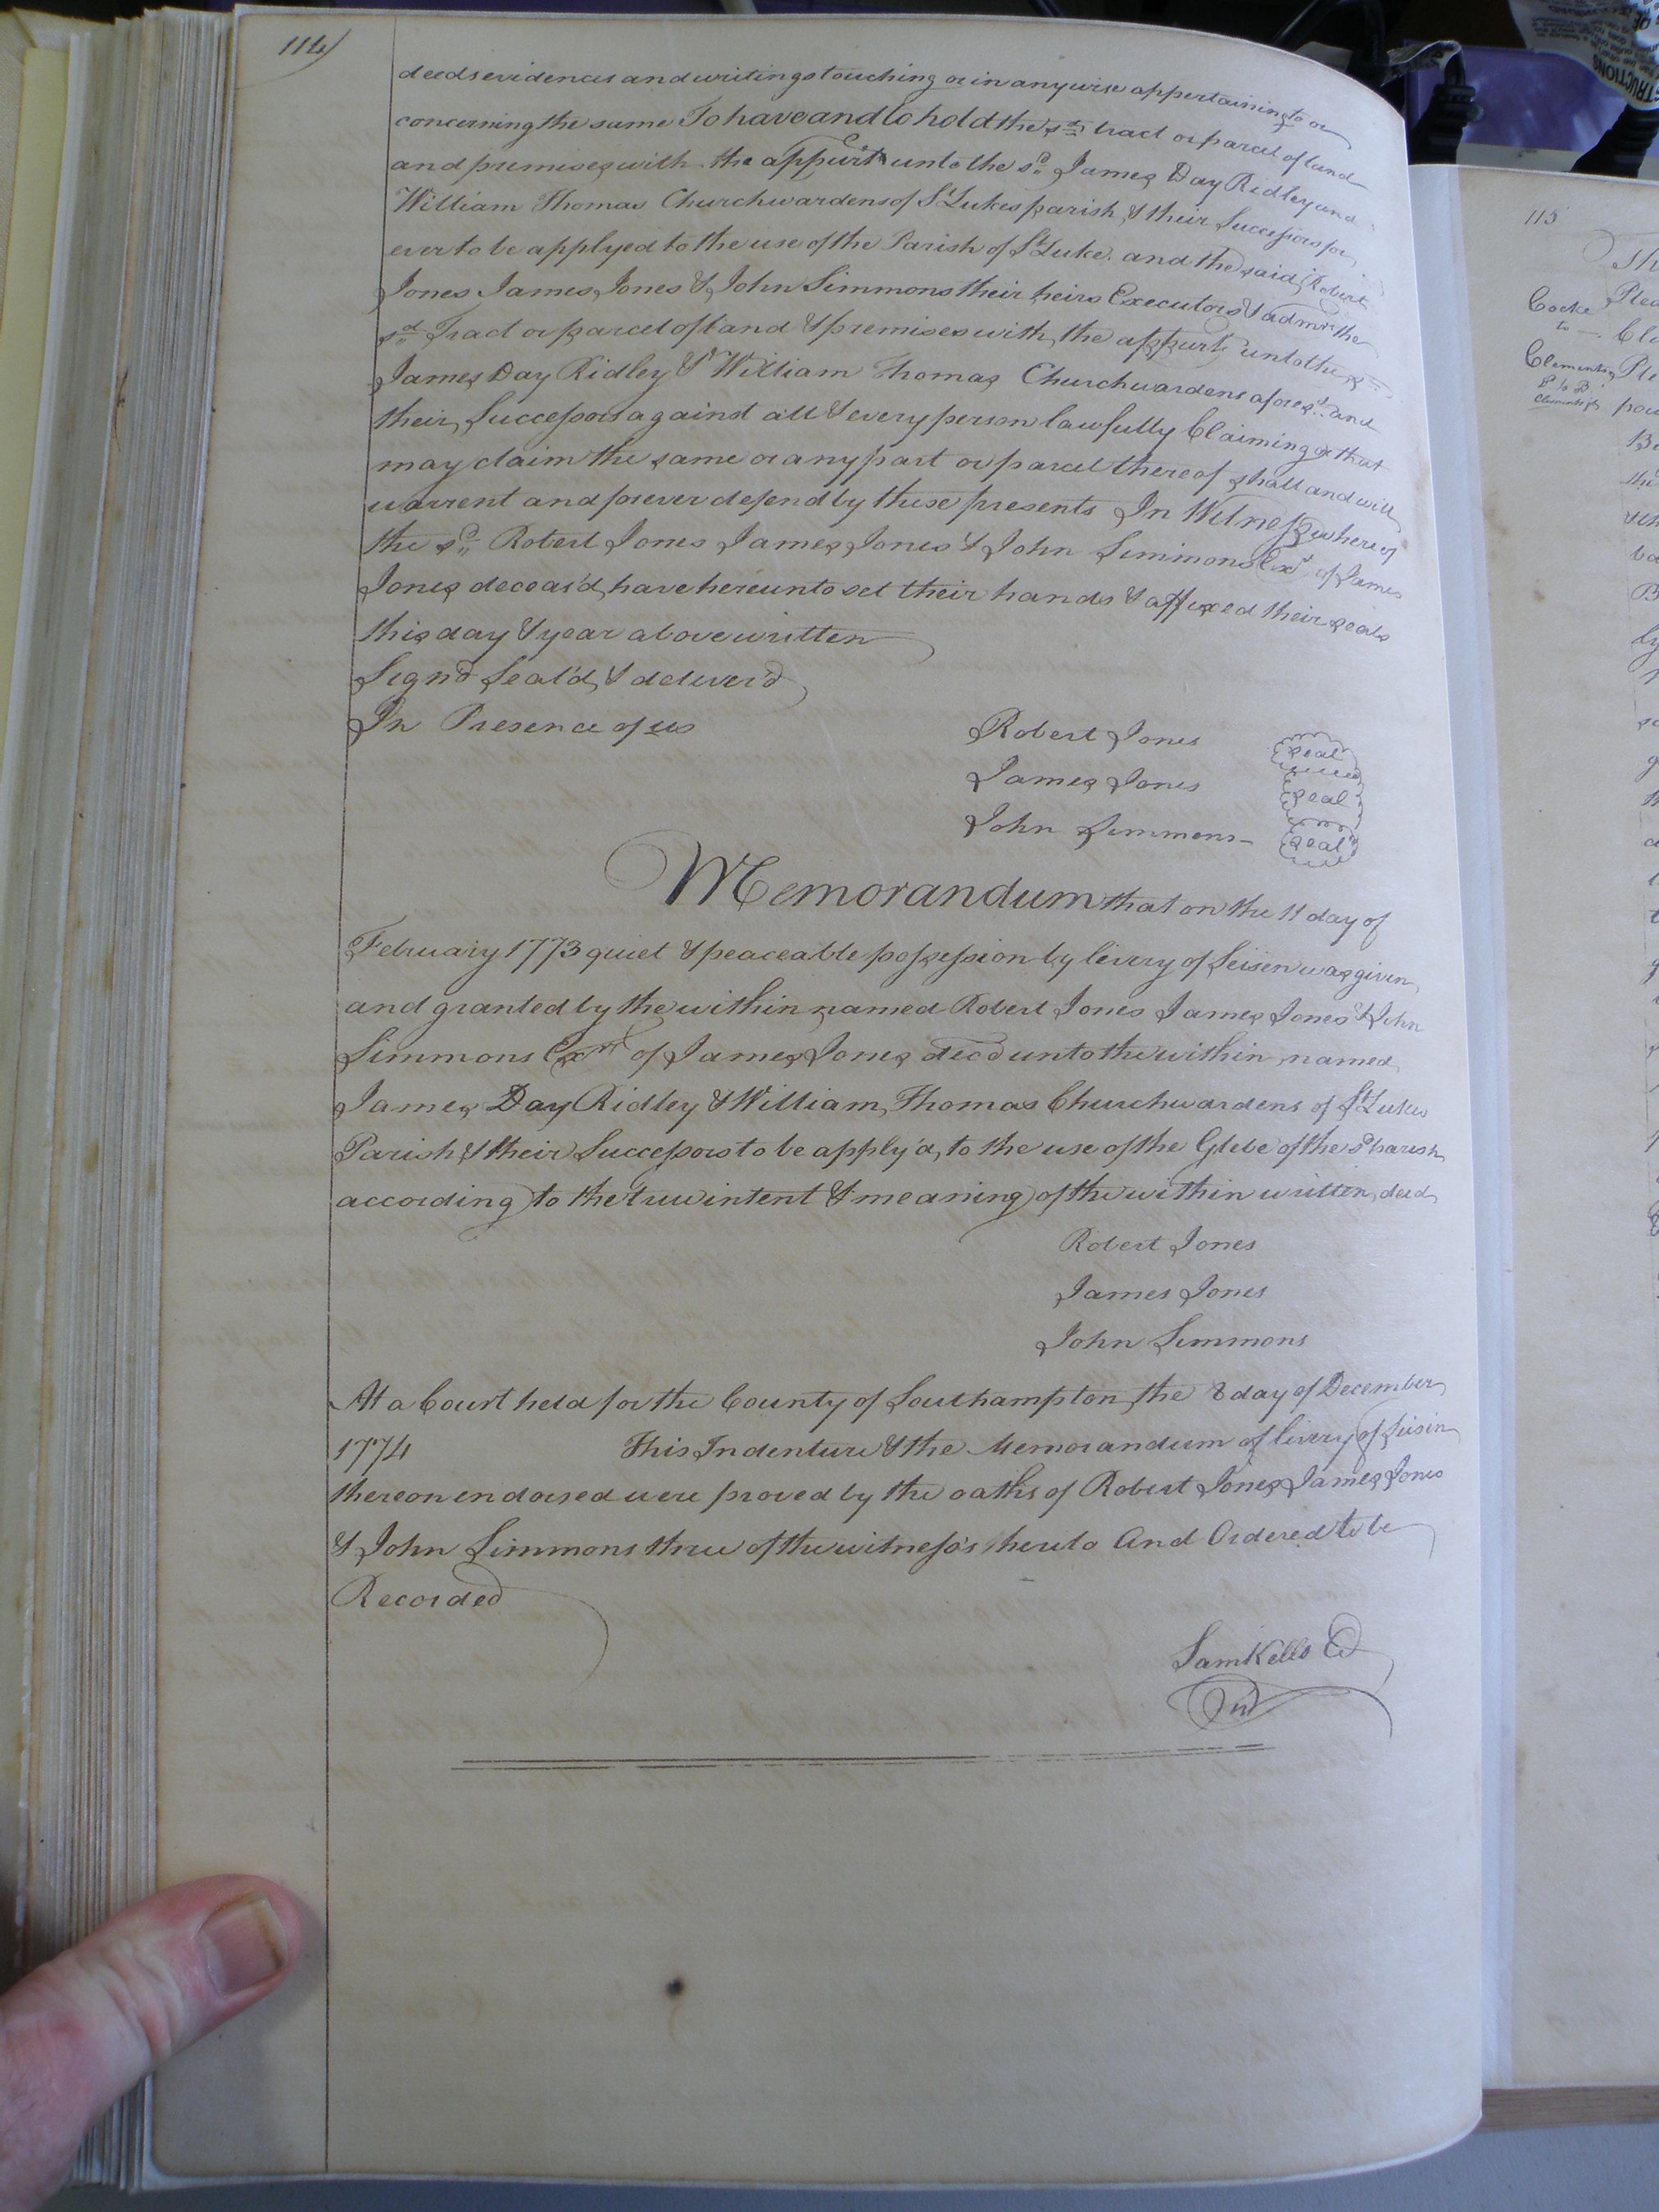 114
deeds evidences and writings touching or in any wise appertaining to or
concerning the same To have and to hold the sd. tract or parcel of land
and premises with the appurts unto the sd. James Day Ridley and
William Thomas Churchwardens of St Lukes parish & their Successors for
ever to be applyed to the use of the Parish of St Luke. and the said Robert
Jones James Jones & John Simmons their heirs Executors & admrs the
sd. Tract or parcel of land & premises with the appurts unto the sd.
James Day Ridley & William Thomas Churchwardens aforesd. and
their Successors against all & every person lawfully Claiming or that
may claim the same or any part or parcel thereof shall and will
warrent and forever defend by these presents In Witness whereof
the sd. Robert Jones James Jones & John Simmons Exrs of James
Jones deceas'd have hereunto set their hands & affixed their seals
this day & year above written
Sign'd Seal'd & deliver'd
In Presence of us
Robert Jones seal
James Jones seal
John Simmons seal
Memorandum that on the 11 day of
February 1773 quiet & peaceable possession by livery of Seisen was given
and granted by the within named Robert Jones James Jones & John
Simmons Exrs of James Jones decd unto the within named
James Day Ridley & William Thomas Churchwardens of St Lukes
Parish & their Successors to be apply'd, to the use of the Glebe of the sd parish
according to the true intent & meaning of the within written deed
Robert Jones
James Jones
John Simmons
At a Court held for the County of Southampton the 8 day of December
1774 This Indenture & the Memorandum of livery of Seisin
thereon endorsed were proved by the oaths of Robert Jones James Jones
& John Simmons three of the witness's hereto And Ordered to be
Recorded
Sam Kello
115
Cocke
to
Clements